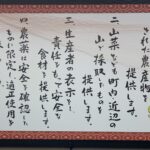 された農産物を
提供します。
二、山菜なども町内近辺の
山で採取したものを
提供します。
三、生産者の表示をし、
責任をもち、安全な
食材を提供します。
四、農薬は安全を確認した
ものに限定し適正使用を